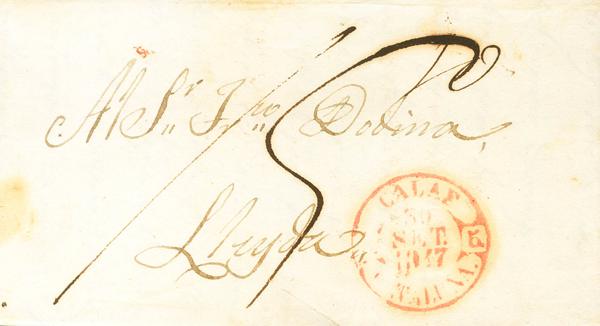 Al Sr. Fco. Dodina.
Lleyda
CALAF
30
SET.
1847
CATALUÑA.